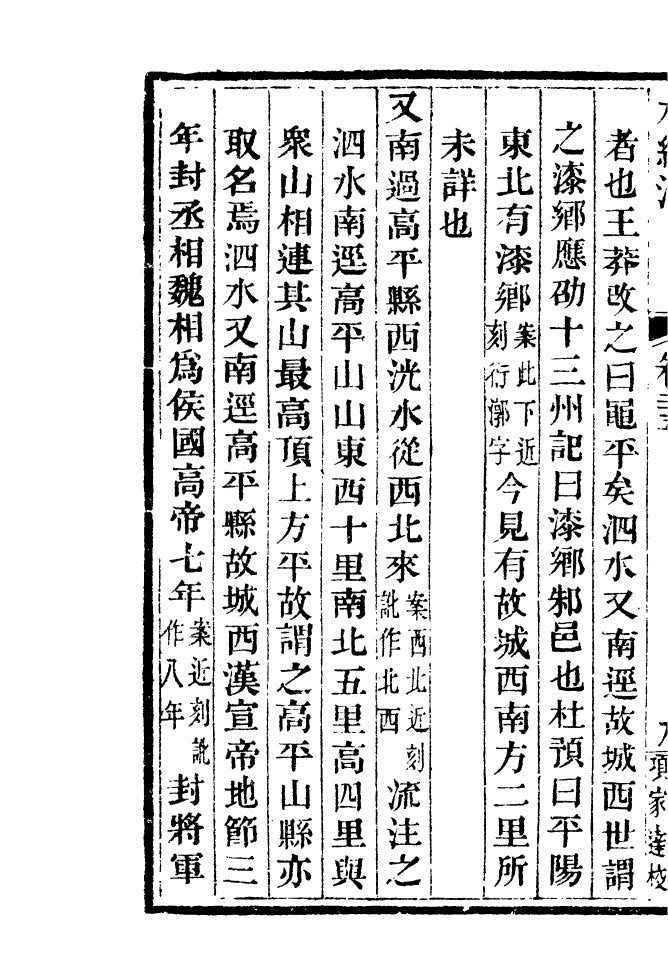 水經注 卷二十五 八 項家達校
者也王莽改之曰黽平矣泗水又南逕故城西世謂
之漆鄉應劭十三州記曰漆鄉邾邑也杜預曰平陽
東北有漆鄉案此下近刻衍漷字今見有故城西南方二里所
未詳也
又南過高平縣西洸水從西北來案西北近刻訛作北西流注之
泗水南逕高平山山東西十里南北五里高四里與
衆山相連其山最高頂上方平故謂之高平山縣亦
取名焉泗水又南逕高平縣故城西漢宣帝地節三
年封丞相魏相爲侯國高帝七年案近刻訛作八年封將軍